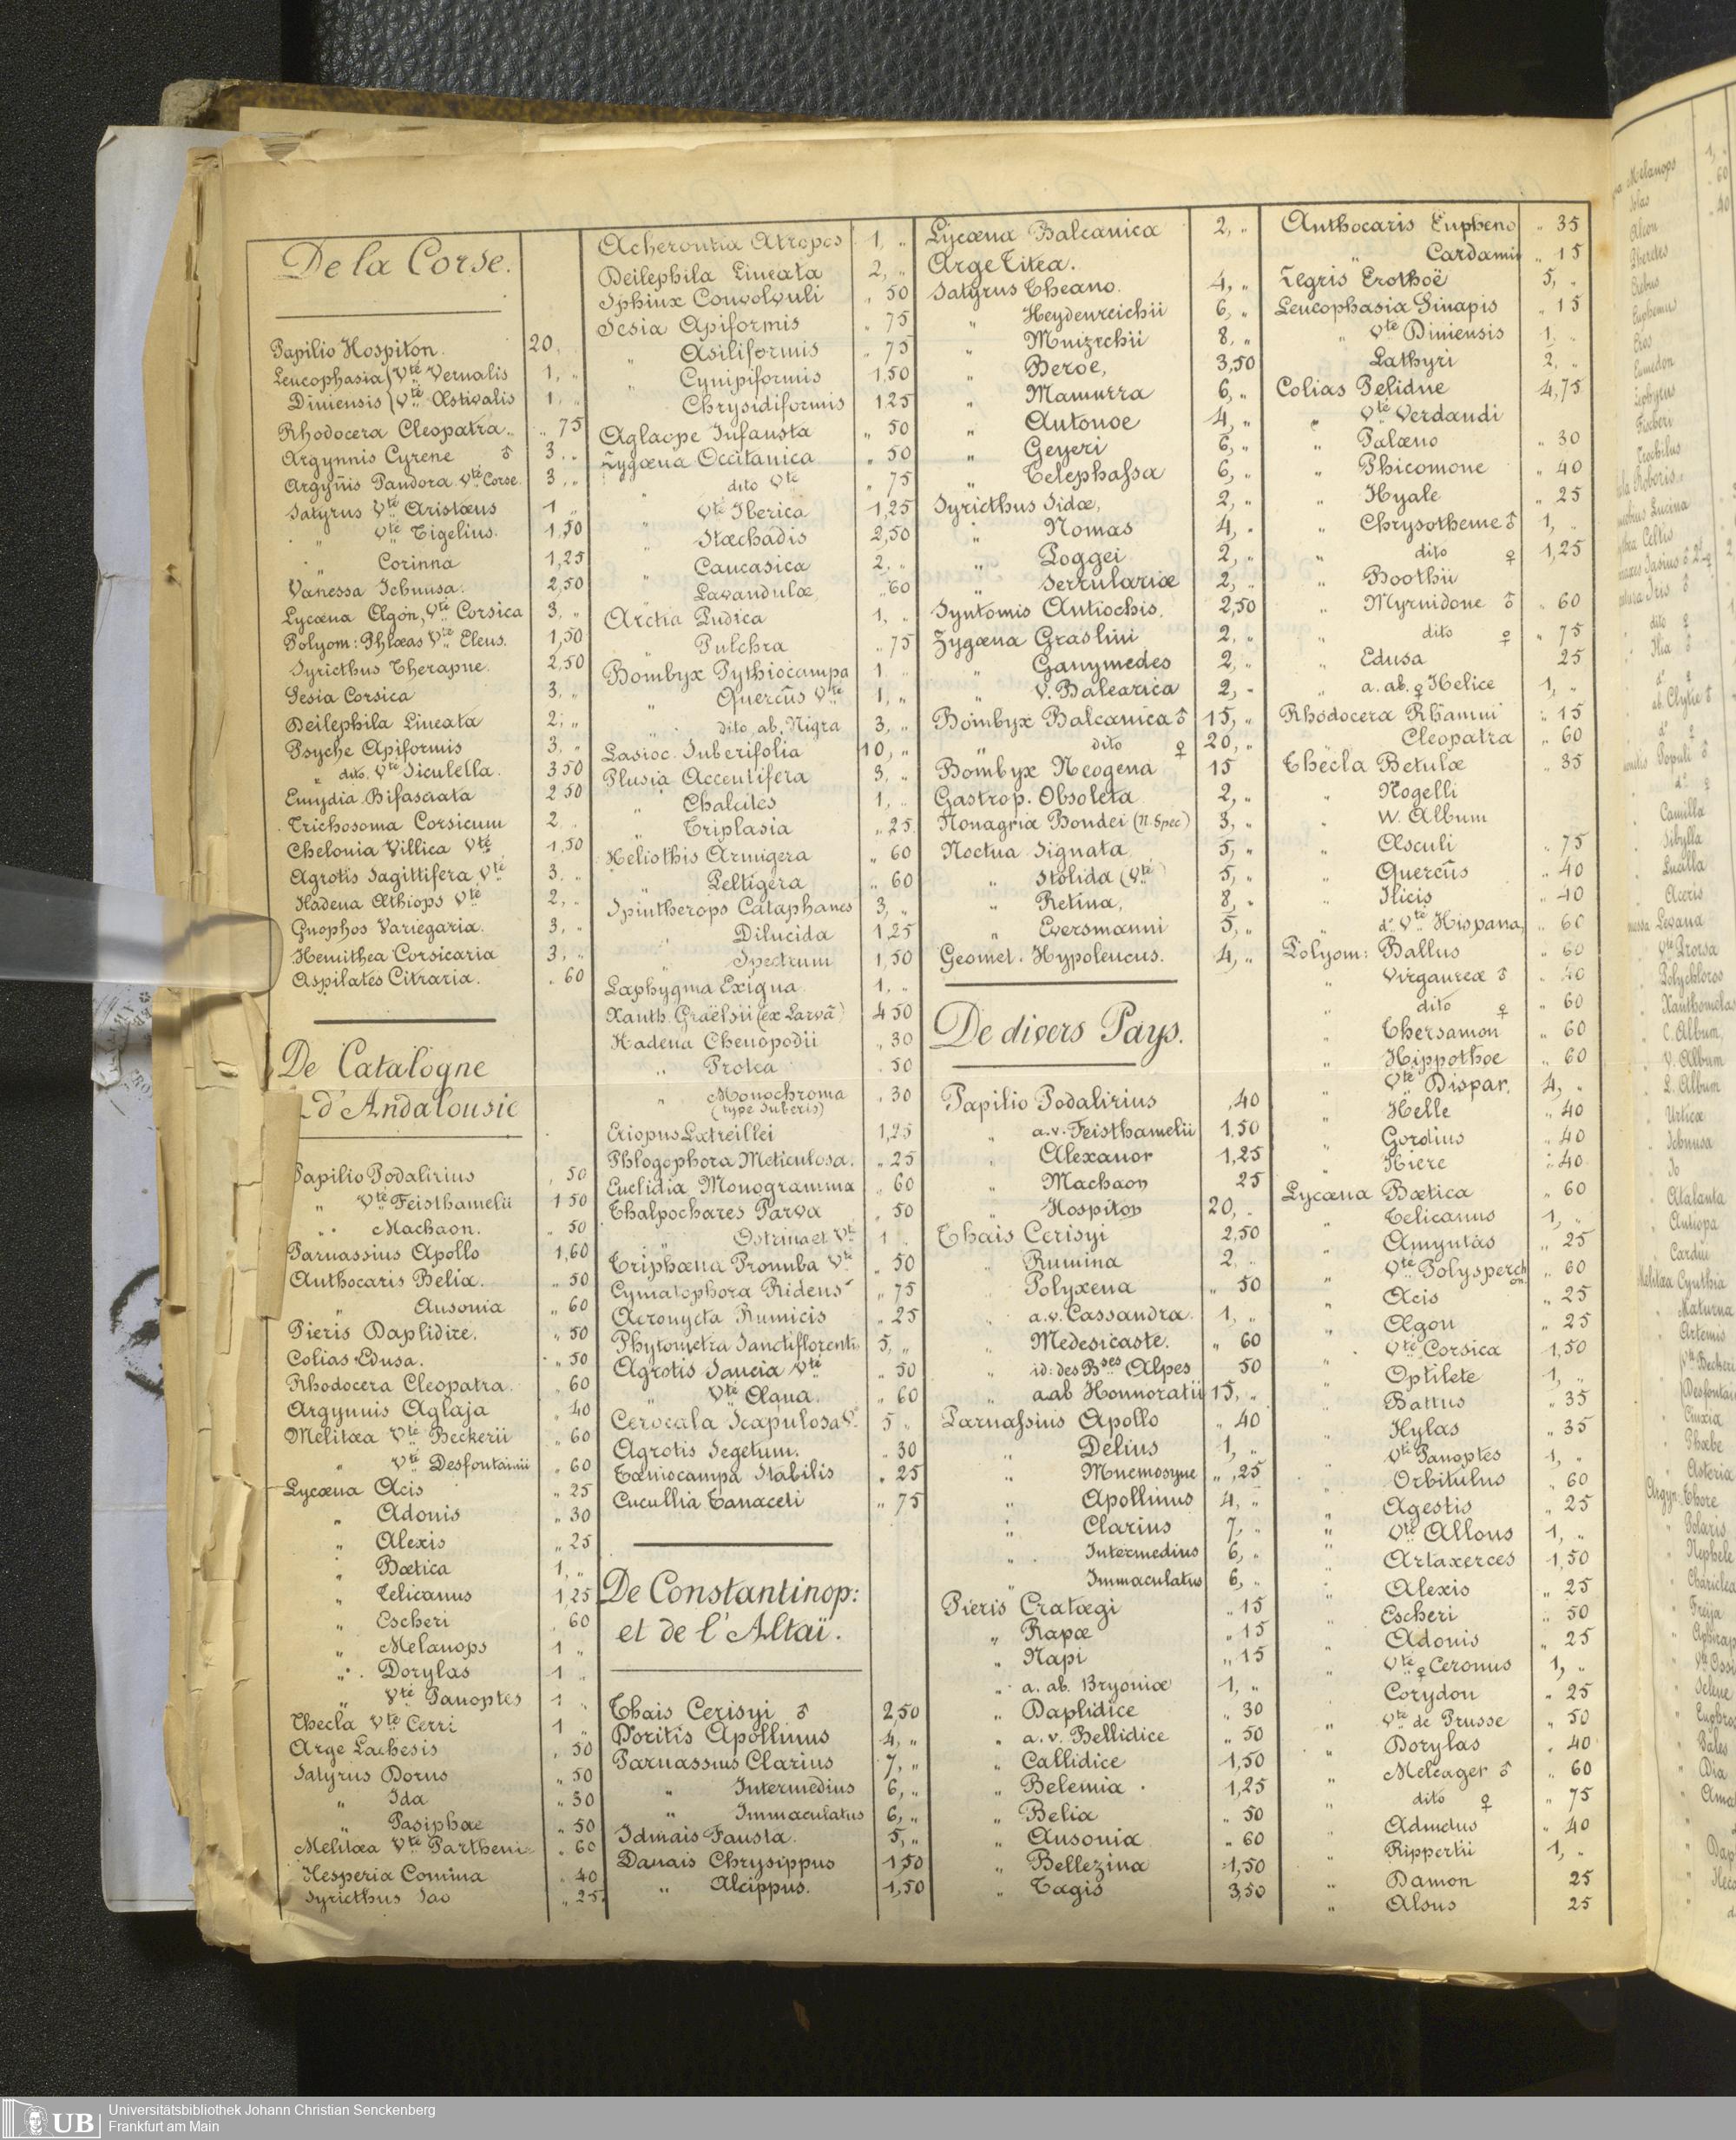 De la Corse.
Papilio Hospiton. 20,
Leucophasia Vté Vernalis 1, „
Diniensis Vté Æstivalis 1, „
Rhodocera Cleopatra „ „ 75
Argynnis Cyrene ♂ 3, „
Argyñis Pandora Vté Corse. 3, „
Satyrus Vté Aristæus 1 „
„ Vté Tigelius. 1,50
„ Corinna 1,25
Vanessa Ichnusa. 2,50
Lycæna Ægon, Vté Corsica 3, „
Polyom: Phlæas Vté Eleus. 1,50
Syricthus Therapne. 2,50
Sesia Corsica 3, „
Deilephila Lineata 2, „
Psyche Apiformis 3, „
„ dito. Vté Siculella. 350
Emydia Bifasciata 250
Trichosoma Corsicum 2 „
Chelonia Villica Vté 1,50
Agrotis Sagittifera Vté 3, „
Hadena Æthiops Vté 2, „
Gnophos Variegaria. 3, „
Hemithea Corsicaria 3, „
Aspilates Citraria. „ 60
De Catalogne
d'Andalousie
Papilio Podalirius , 50
„ Vté Feisthamelii 1 50
„ Machaon. „ 50
Parnassius Apollo 1,60
Anthocaris Belia. „ 50
„ Ausonia „ 60
Pieris Daplidice. „ 50
Colias Edusa. „ 50
Rhodocera Cleopatra. „ 60
Argynnis Aglaja „ 40
Melitæa Vté Beckerii „ 60
„ Vté Desfontainii „ 60
Lycæna Acis „ 25
„ Adonis „ 30
„ Alexis „ 25
„ Bætica 1, „
„ Telicanus 1,25
„ Escheri „ 60
„ Melanops 1 „
„ Dorylas 1 „
„ Vté Panoptes 1 „
Thecla Vté Cerri 1 „
Arge Lachesis , 50
Satyrus Dorus „ 50
„ Ida „ 30
„ Pasiphae „ 50
Melitæa Vté Parthenie „ 60
Hesperia Comma „ 40
Syricthus Sao „ 25
Acherontia Atropos 1, „
Deilephila Lineata 2, „
Sphinx Convolvuli „ 50
Sesia Apiformis „ 75
„ Asiliformis „ 75
„ Cynipiformis 1,50
Chrysidiformis 125
Aglaope Infausta „ 50
Zygæna Occitanica „ 50
„ dito Vté „ 75
Vté Iberica 1,25
„ Stæchadis 2,50
„ Caucasica 2 „
„ Lavandulæ „ 60
Arctia Pudica 1, „
„ Pulchra „ 75
Bombyx Pythiocampa 1 „
„ Quercûs Vté 1, „
„ dito, ab. Nigra 3, „
Lasioc. Suberifolia 10, „
Plusia Accentifera 3, „
„ Chalcites 1, „
„ Triplasia „ 25
Heliothis Armigera „ 60
„ Peltigera „ 60
Spintherops Cataphanes 3, „
„ Dilucida 1,25
„ Spectrum 1,50
Laphygma Exigua 1, „
Xanth. Graëlsii (ex Larvâ) 450
Hadena Chenopodii „ 30
„ Protea „ 50
„ Monochroma „ 30
(type Suberis)
Eriopus Latreillei 1,25
Phlogophora Meticulosa. „ 25
Euclidia Monogramma „ 60
Thalpochares Parva „ 50
„ Ostrina et Vté 1 „
Triphæna Pronuba Vté „ 50
Cymatophora Ridens „ 75
Acronycta Rumicis „ 25
Phytometra Sanctiflorentis 5, „
Agrotis Saucia Vté „ 50
„ Vté Æqua. „ 60
Cerocala Scapulosa Vté 5 „
Agrotis Segetum. „ 30
Tæniocampa Stabilis „ 25
Cucullia Tanaceti „ 75
De Constantinop:
et de l'Altaï.
Thais Cerisyi ♂ 2,50
Doritis Apollinus 4, „
Parnassius Clarius 7, „
„ Intermedius 6, „
„ Immaculatus 6, „
Idmais Fausta. 5, „
Danais Chrysippus 1,50
„ Alcippus. 1,50
Lycæna Balcanica 2, „
Arge Titea.
Satyrus Theano. 4, „
„ Heydenreichii 6, „
„ Mnizechii 8, „
„ Beroe, 3,50
„ Mamurra 6, „
„ Autonoe 4, „
„ Geyeri 6, „
„ Telephassa 6, „
Syricthus Sidæ, 2, „
„ Nomas 4, „
„ Poggei 2, „
„ Serrulariæ 2, „
Syntomis Antiochis. 2,50
Zygæna Graslini 2, „
„ Ganymedes 2, „
„ V. Balearica 2, „
Bombyx Balcanica ♂ 15, „
„ dito ♀ 20, „
Bombyx Neogena 15
Gastrop. Obsoleta 2, „
Nonagria Bondei (n. Spec) 3, „
Noctua Signata 5, „
„ Stolida (Vté) 5, „
„ Retina, 8, „
„ Eversmanni 5, „
Geomet. Hypoleucus. 4, „
De divers Pays.
Papilio Podalirius ,40
„ a.v. Feisthamelii 1,50
Alexanor 1,25
„ Machaon 25
„ Hospiton 20, „
Thais Cerisyi 2,50
„ Rumina 2, „
„ Polyxena „ 50
„ a.v. Cassandra. 1, „
„ Medesicaste. „ 60
„ id: des Bses Alpes 50
„ a ab Honnoratii 15, „
Parnassius Apollo „ 40
„ Delius 1, „
„ Mnemosyne „ ,25
„ Apollinus 4, „
„ Clarius 7, „
„ Intermedius 6, „
„ Immaculatus 6, „
Pieris Cratægi „ 15
„ Rapæ „ 15
„ Napi „ 15
„ a. ab. Bryoniæ 1, „
„ Daplidice „ 30
„ a. v. Bellidice „ 50
„ Callidice 1,50
„ Belemia 1,25
„ Belia „ 50
„ Ausonia „ 60
„ Bellezina 1,50
„ Tagis 3,50
Anthocaris Eupheno „ 35
„ Cardamis „ 15
Zegris Erothoë 5, „
Leucophasia Sinapis „ 15
„ Vté Diniensis 1, „
Lathyri 2, „
Colias Pelidne 4,75
„ Vté Verdandi
„ Palæno „ 30
„ Phicomone „ 40
„ Hyale „ 25
„ Chrysotheme ♂ 1, „
„ dito ♀ 1,25
„ Boothii
„ Myrnidone ♂ „ 60
„ dito ♀ „ 75
„ Edusa 25
„ a. ab. ♀ Helice 1, „
Rhodocera Rhamni „ 15
„ Cleopatra „ 60
Thecla Betulæ „ 35
„ Nogelli
„ W. Album
„ Æsculi „ 75
„ Quercûs „ 40
„ Ilicis „ 40
„ do Vté Hispana, „ 60
Polyom: Ballus „ 60
„ Virgaureæ ♂ „ 40
„ dito ♀ „ 60
„ Thersamon „ 60
„ Hippothoe „ 60
„ Vté Dispar. 4, „
„ Helle „ 40
„ Gordius „ 40
„ Hiere „ 40
Lycæna Bætica „ 60
„ Telicanus 1, „
„ Amyntas „ 25
„ Vté Polysperchon. „ 60
„ Acis „ 25
„ Ægon „ 25
„ Vté Corsica 1,50
„ Optilete 1, „
„ Battus „ 35
„ Hylas „ 35
„ Vté Panoptes 1, „
„ Orbitulus „ 60
„ Agestis „ 25
„ Vté Allous 1, „
„ Artaxerces 1,50
„ Alexis „ 25
„ Escheri „ 50
„ Adonis „ 25
„ Vté ♀ Ceronus 1, „
Corydon „ 25
„ Vté de Prusse „ 50
„ Dorylas „ 40
„ Meleager ♂ „ 60
„ dito ♀ „ 75
„ Admetus „ 40
„ Rippertii 1, „
„ Damon 25
„ Alsus 25
Melanops 1, „
Iolas „ 60
Alcon „ 40
Erebus
Euphemus
Eros
Eumedon
Zephyrus
Fischeri
Trochilus
Roboris
Lucina
Celtis
Jasius
Iris ♂
dito ♀
Ilia ♂
do ♀
ab. Clytie ♂
do ♀
Populi ♂
do ♀
Camilla
Sibylla
Lucilla
Aceris
Levana
Vté Prorsa
Polychloros
Xanthomelas
C. Album
V. Album
L. Album
Urticæ
Ichnusa
Io
Atalanta
Antiopa
Cardui
Melitæa Cynthia
Maturna
Artemis
Vté Beckeri
Desfontai
Cinxia
Phœbe
Asteria
Argyn. Thore
Polaris
Chariclea
Freija
Vté Ossi
Selene
Euphro
Pales
Dia
Universitätsbibliothek Johann Christian Senckenberg
Frankfurt am Main
UB